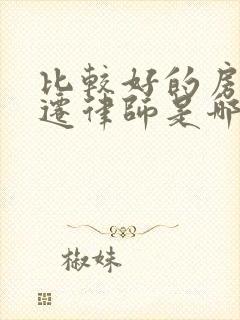 比較好的房
遷律師是哪
椒妹